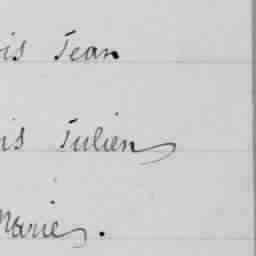 is Jean
is Julien
Marie.